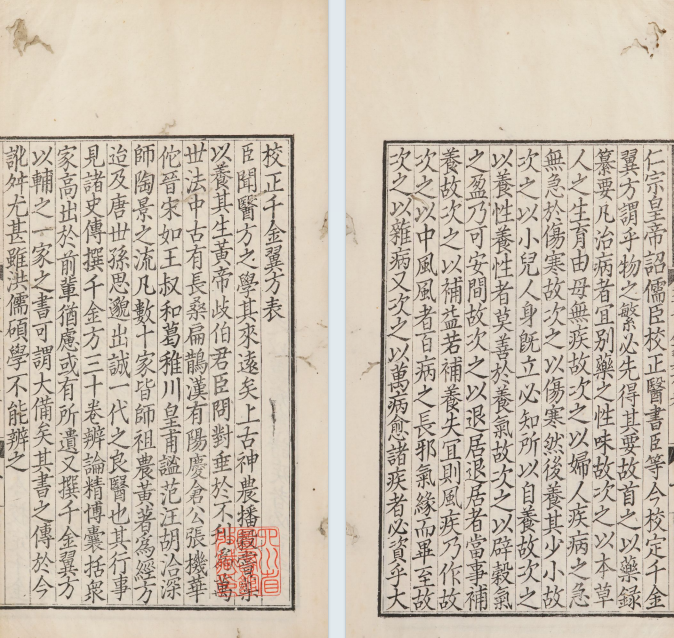 校正千金翼方表
臣聞醫方之學其來遠矣上古神農播穀嘗藥
以養其生黃帝歧伯君臣問對垂於不刊爲萬
丗法中古有長桑扁鵲漢有陽慶倉公張機華
佗晉宋如王叔和葛稚川皇甫謐范汪胡洽深
師陶景之流凡數十家皆師祖農黃著爲經方
迨及唐世孫思邈出誠一代之良醫也其行事
見諸史傳撰千金方三十卷辨論精博囊括衆
家高出於前輩猶慮或有所遺又撰千金翼方
以輔之一家之書可謂大備矣其書之傳於今
訛舛尤甚雖洪儒碩學不能辨之
仁宗皇帝詔儒臣校正醫書臣等今校定千金
翼方謂乎物之繁必先得其要故首之以藥録
纂要凡治病者宜别藥之性味故次之以本草
人之生育由母無疾故次之以婦人疾病之急
無急於傷寒故次之以傷寒然後養其少小故
次之以小兒人身旣立必知所以自養故次之
以養性養性者莫善於養氣故次之以辟穀氣
之盈乃可安閒故次之以退居退居者當事補
養故次之以補益若補養失宜則風疾乃作故
次之以中風風者百病之長邪氣緣而畢至故
次之以雜病又次之以萬病愈諸疾者必資乎大